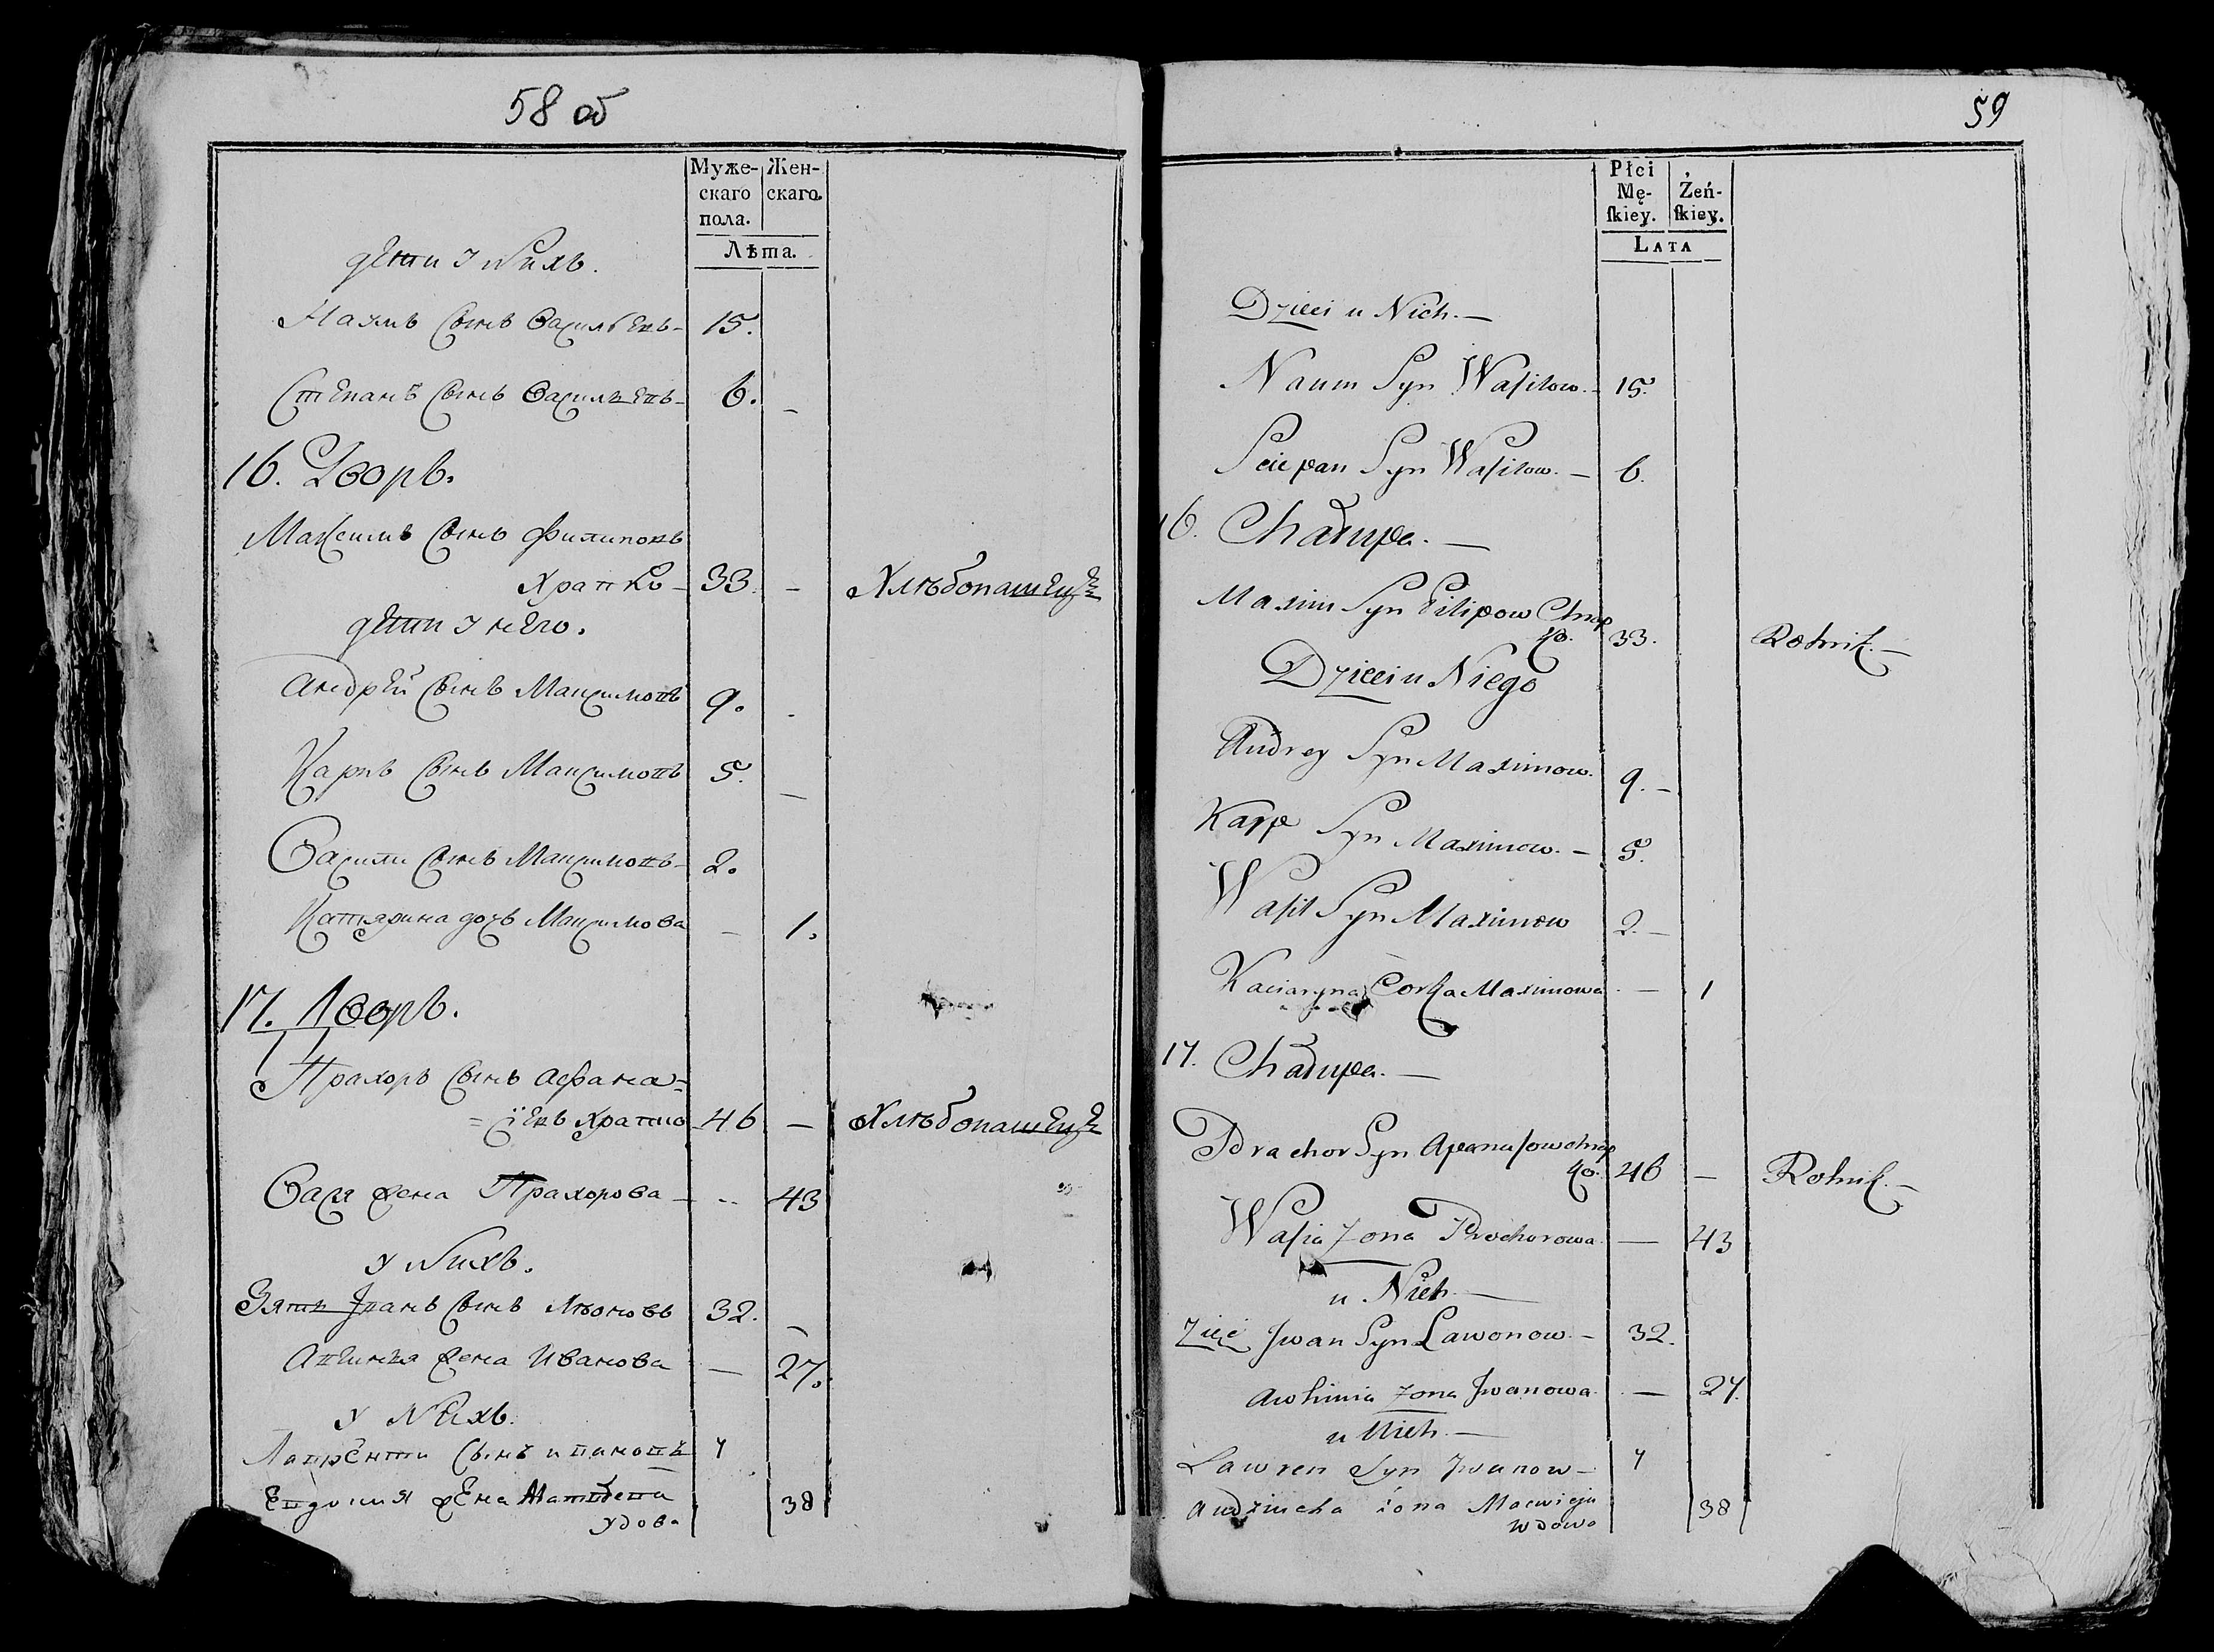 58 об
Муже-
скаго
пола.
Жен-
скаго.
Лѣта.
дети у Нихъ.
Наумъ Сынъ Васильевъ - 15.
Степанъ Сынъ Васильевъ - 6. -
16. Дворъ.
Максимъ Сынъ Филиповъ
Храпко - 33. - Хлѣбопашецъ
дети у него.
Андрей Сынъ Максимовъ 9. -
Карпъ Сынъ Максимовъ 5. -
Васили Сынъ Максимовъ - 2.
Катярина дочь Максимова - 1.
17. Дворъ.
Прахоръ Сынъ Афана=
=сіевъ Храпко 46 - Хлѣбопашецъ
Вася жена Прахорова - - 43
у Нихъ.
Зять Іванъ Сынъ Лѣоновъ 32. -
Авгиния жена Иванова - 27.
у Нихъ.
Лаврѐнти Сынъ ивановъ 7
Евдокия жена Матвѣева 38
удова
59
Płci
Mę-
ſkiey.
Żeń-
ſkiey.
LATA
Dzieci u Nich. -
Naum Syn Waſilow. - 15.
Sciepan Syn Waſilow. - 6.
16. Chałupa. -
Maxim Syn Filipow Chrap
ko. 33. Rolnik. -
Dzieci u Niego
Andrey Syn Maximow. 9. -
Karp Syn Maximow. - 5.
Waſil Syn Maximow 2. -
Kaciaryna Corka Maximowa - 1
17. Chałupa. -
Prachor Syn Apanaſow chrap
ko. 46 - Rolnik. -
Waſia Zona Prochorowa. - 43
u Nich. -
Zięć Jwan Syn Lawonow. - 32.
Awhinia Zona Jwanowa. - 27.
u Nich. -
Lawren Syn Jwanow - 7
Audziucha żona Macwieja 38
wdowa